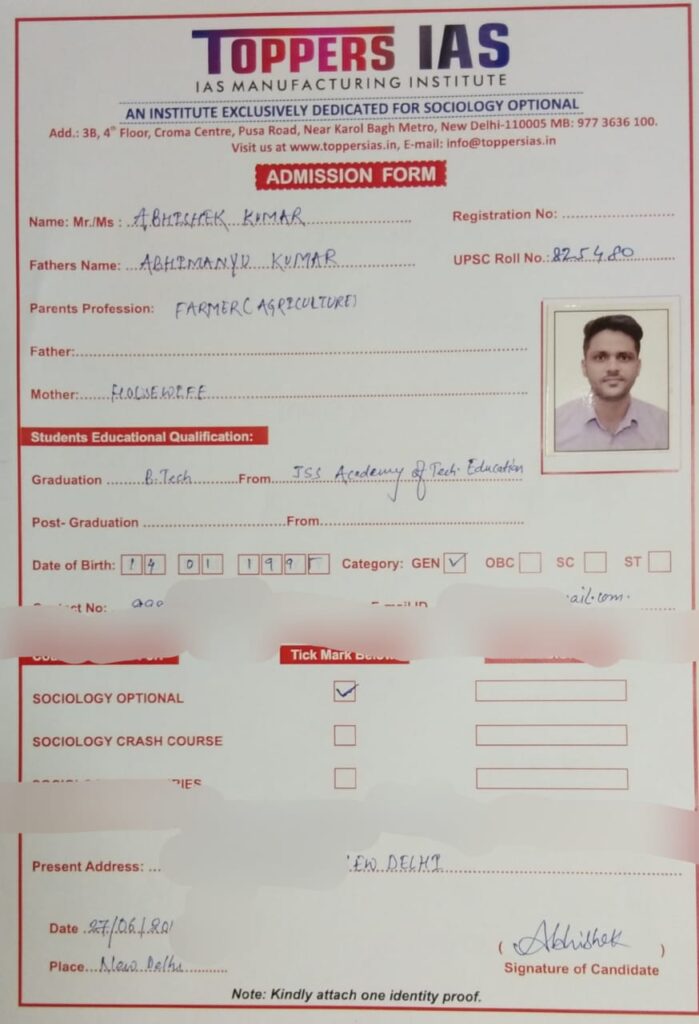 TOPPERS IAS
IAS MANUFACTURING INSTITUTE
AN INSTITUTE EXCLUSIVELY DEDICATED FOR SOCIOLOGY OPTIONAL
Add.: 3B, 4th Floor, Croma Centre, Pusa Road, Near Karol Bagh Metro, New Delhi-110005 MB: 977 3636 100.
Visit us at www.toppersias.in, E-mail: info@toppersias.in
ADMISSION FORM
Name: Mr./Ms : ABHISHEK KUMAR Registration No:
Fathers Name: ABHIMANYU KUMAR UPSC Roll No.: 825480
Parents Profession: FARMER (AGRICULTURE)
Father:
Mother: HOUSEWIFE
Students Educational Qualification:
Graduation B.Tech From JSS Academy of Tech. Education
Post- Graduation From
Date of Birth: 14 01 1995 Category: GEN ✓ OBC SC ST
No:
Tick Mark
SOCIOLOGY OPTIONAL ✓
SOCIOLOGY CRASH COURSE
Present Address: DELHI
Date 27/06/20
Place New Delhi
( Abhishek )
Signature of Candidate
Note: Kindly attach one identity proof.